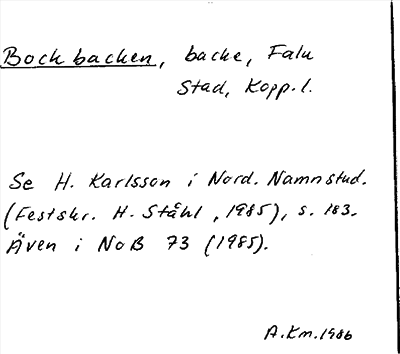 Bockbacken, backe, Falu
stad, Kopp. l.
Se H. Karlsson i Nord. Namnstud.
(Festskr. H. Ståhl, 1985), s. 183.
Även i NoB 73 (1985).
A.Km.1986